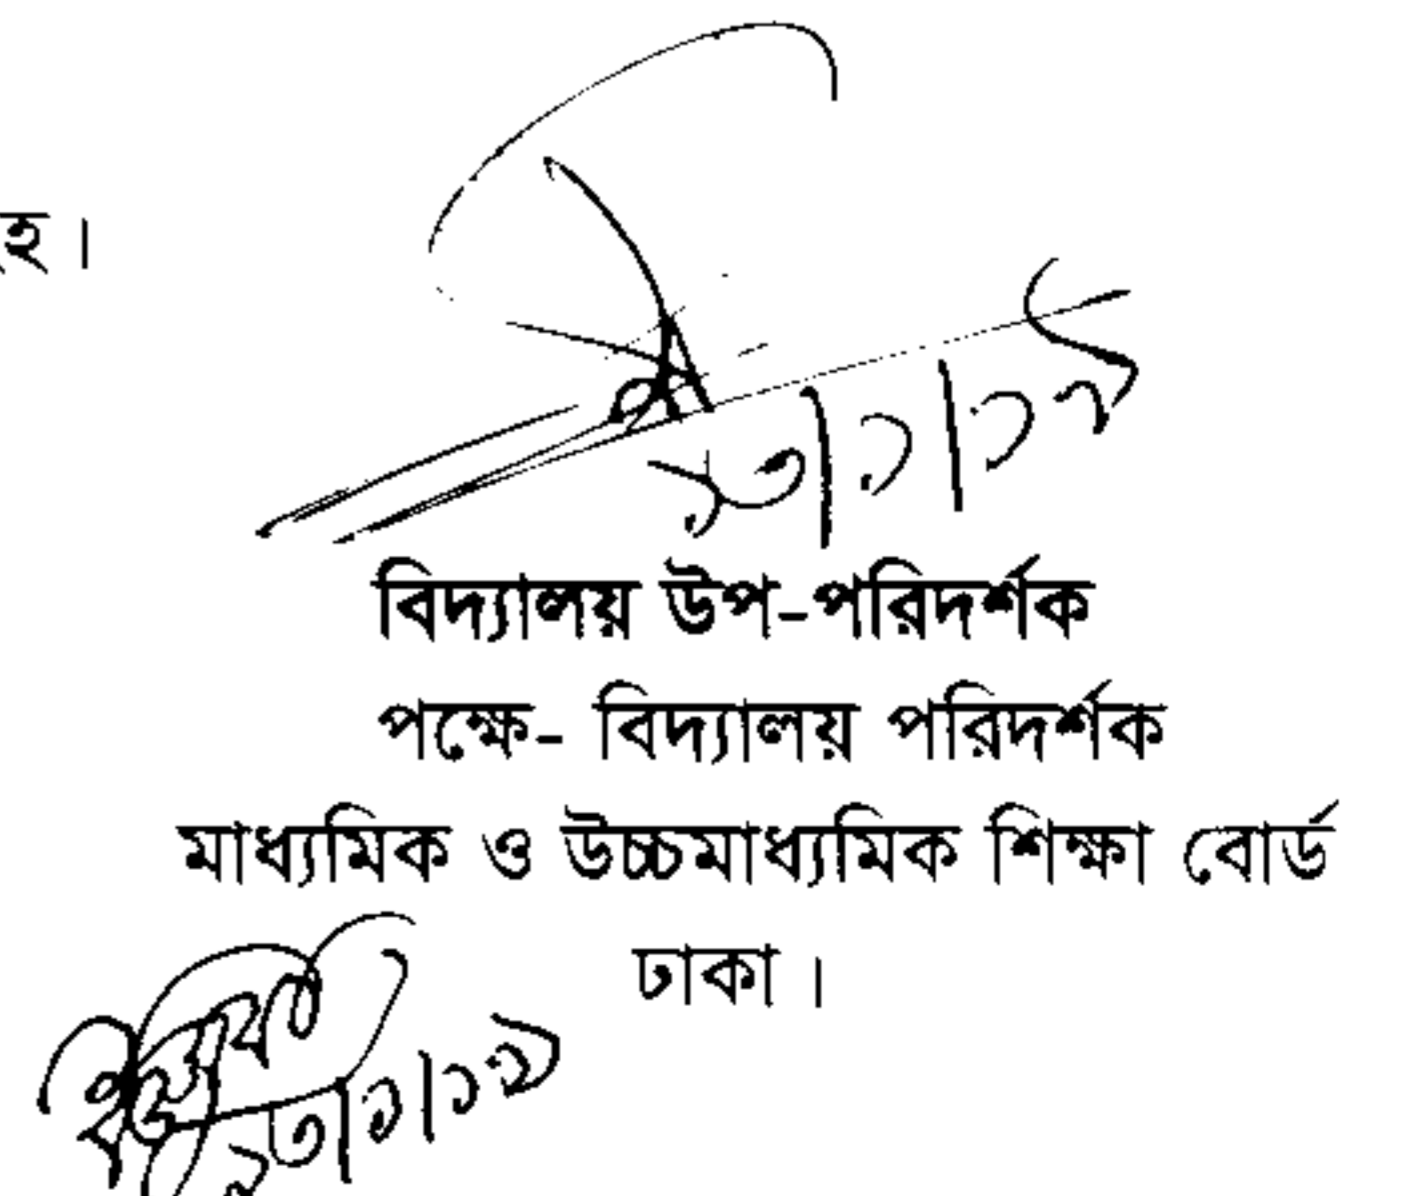 হ ।
বিদ্যালয় উপ-পরিদর্শক
পক্ষে- বিদ্যালয় পরিদর্শক
মাধ্যমিক ও উচ্চমাধ্যমিক শিক্ষা বোর্ড
ঢাকা ।